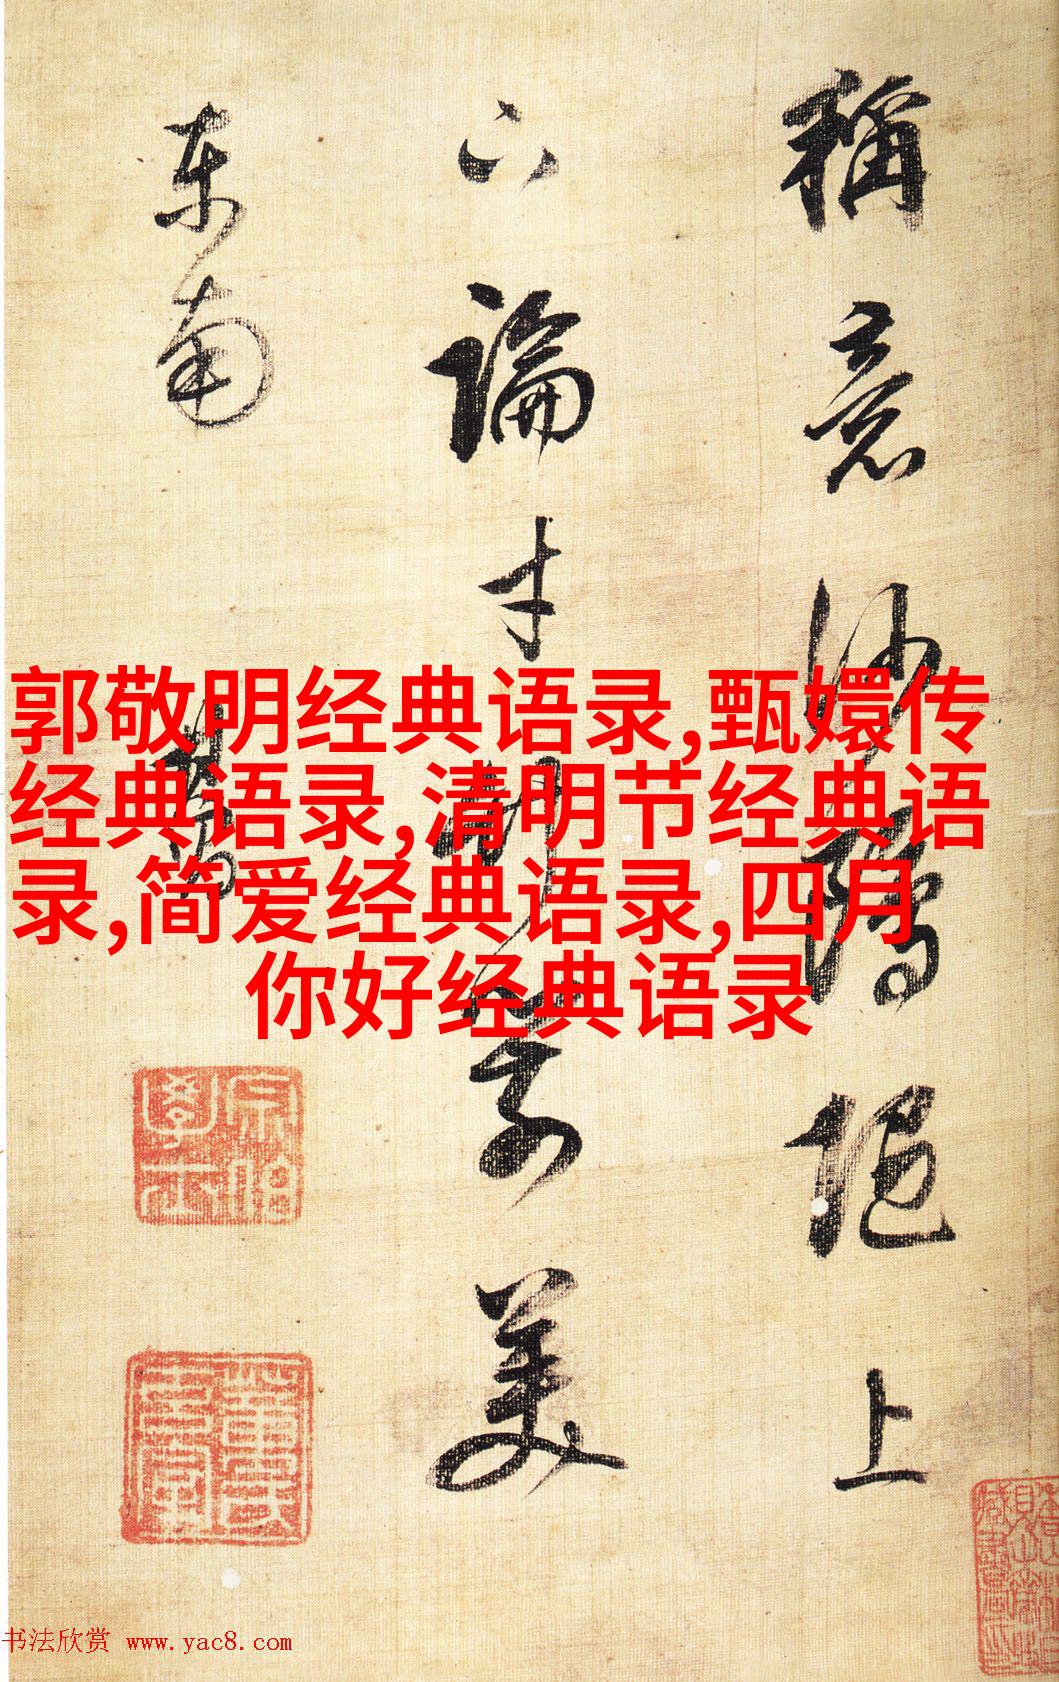 稱意沙
上
論才
美
東南
郭敬明经典语录,甄嬛传
经典语录,清明节经典语
录,简爱经典语录,四月
你好经典语录
宗伯學士
董氏玄宰
书法欣赏 www.yac8.com